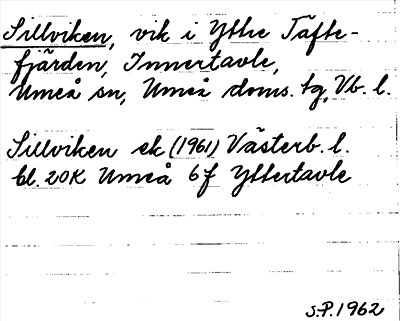 Sillviken, vik i Yttre Täfte-
fjärden, Innertavle,
Umeå sn, Umeå doms. tg, Vb. l.
Sillviken ek (1961) Västerb. l.
bl. 20K Umeå 6f Yttertavle
S.P. 1962